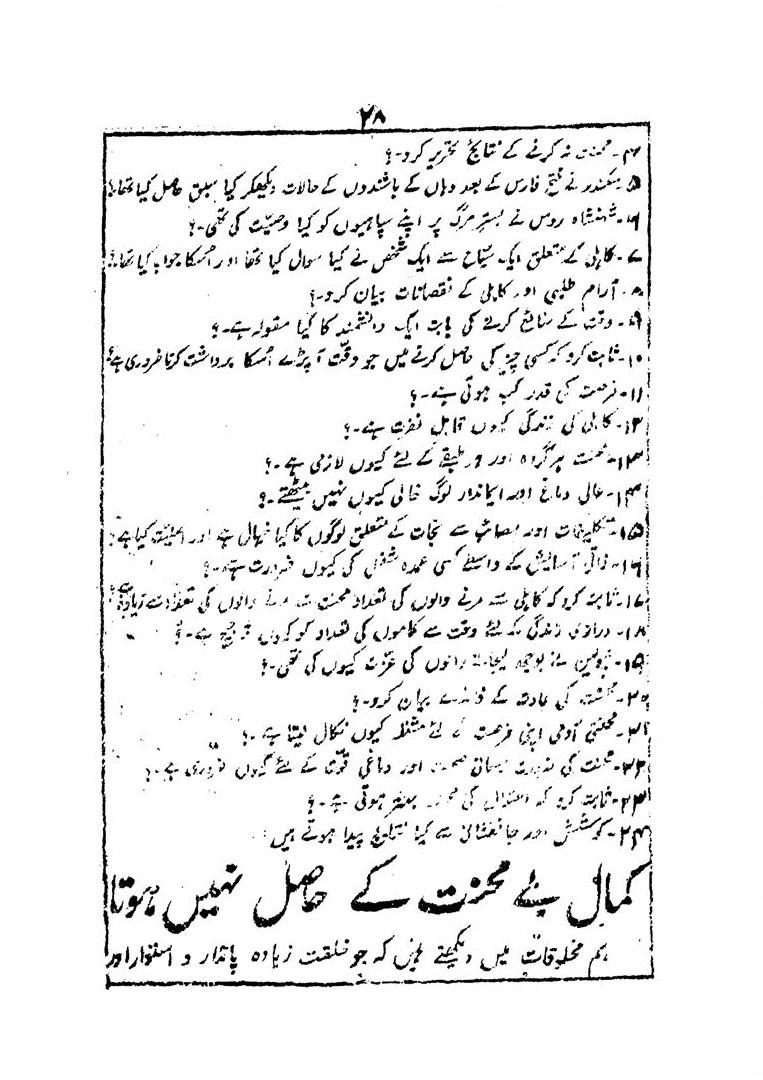 ۲۸
۴۔ محنت نہ کرنے کے نتائج تحریر کرو۔؟
۵۔ سکندر نے فتح فارس کے بعد وہاں کے باشندوں کے حالات دیکھکر کیا سبق حاصل کیا تھا؟
۶۔ شہنشاہ روس نے بستر مرگ پر اپنے سپاہیوں کو کیا وصیت کی تھی۔؟
۷۔ کاہلی کے متعلق ایک سیّاح سے ایک شخص نے کیا سوال کیا تھا اور اُسکا جواب کیا تھا؟
۸۔ آرام طلبی اور کاہلی کے نقصانات بیان کرو۔؟
۹۔ وقت کے ضائع کرنے کی بابت ایک دانشمند کا کیا مقولہ ہے۔؟
۱۰۔ ثابت کرو کہ کسی چیز کی حاصل کرنے میں جو دقّت آ پڑے اُسکا برداشت کرنا ضروری ہے؟
۱۱۔ فرصت کی قدر کب ہوتی ہے۔؟
۱۲۔ کاہلی کی زندگی کیوں قابل نفرت ہے۔؟
۱۳۔ محنت ہر گروہ اور ہر طبقے کے لئے کیوں لازمی ہے۔؟
۱۴۔ عالی دماغ اور ایماندار لوگ خالی کیوں نہیں بیٹھتے۔؟
۱۵۔ تکلیفات اور مصائب سے نجات کے متعلق لوگوں کا کیا خیال ہے اور اصلیت کیا ہے؟
۱۶۔ ذاتی آسایش کے واسطے کسی عمدہ شغل کی کیوں ضرورت ہے۔؟
۱۷۔ ثابت کرو کہ کاہلی سے مرنے والوں کی تعداد محنت سے مرنے والوں کی تعداد سے زیادہ ہے؟
۱۸۔ درازی زندگی کے لئے وقت سے کاموں کی تعداد کو کیوں ترجیح ہے۔؟
۱۹۔ نپولین نے بوجھ لیجانے والوں کی عزت کیوں کی تھی۔؟
۲۰۔ محنت کی عادت کے فائدے بیان کرو۔؟
۲۱۔ محنتی آدمی اپنی فرصت کے لئے مشغلہ کیوں نکال لیتا ہے۔؟
۲۲۔ محنت کی ضرورت جسمانی صحت اور دماغی قوّت کے لئے کیوں ضروری ہے۔؟
۲۳۔ ثابت کرو کہ اعتدال کی محنت بہتر ہوتی ہے۔؟
۲۴۔ کوشش اور جانفشانی سے کیا نتائج پیدا ہوتے ہیں؟
کمال بے محنت کے حاصل نہیں ہوتا
ہم مخلوقات میں دیکھتے ہیں کہ جو خلقت زیادہ پائدار و استوار اور